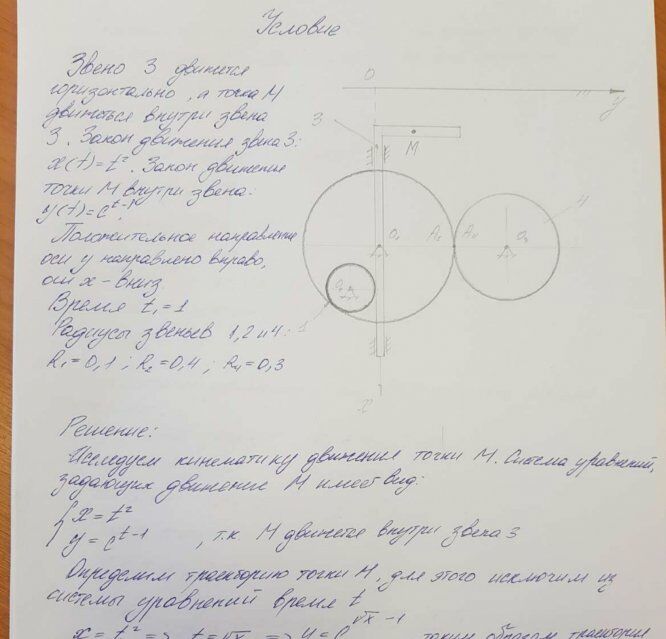 Условие
Звено 3 движется
горизонтально, а точка М
движется внутри звена
3. Закон движения звена 3:
x(t)=t². Закон движения
точки М внутри звена:
y(t)=e^{t-1}.
Положительное направление
оси y направлено вправо,
оси x - вниз.
Время t₁ = 1
Радиусы звеньев 1, 2 и 4:
R₁=0,1; R₂=0,4; R₄=0,3
O
y
3
M
4
O₁
A₂
A₄
O₄
1
x
Решение:
Исследуем кинематику движения точки М. Система уравнений,
задающих движение М имеет вид:
{ x = t²
y = e^{t-1}, т.к. М движется внутри звена 3
Определим траекторию точки М, для этого исключим из
системы уравнений время t
x = t² => t = √x => y = e^{√x - 1} таким образом траектория